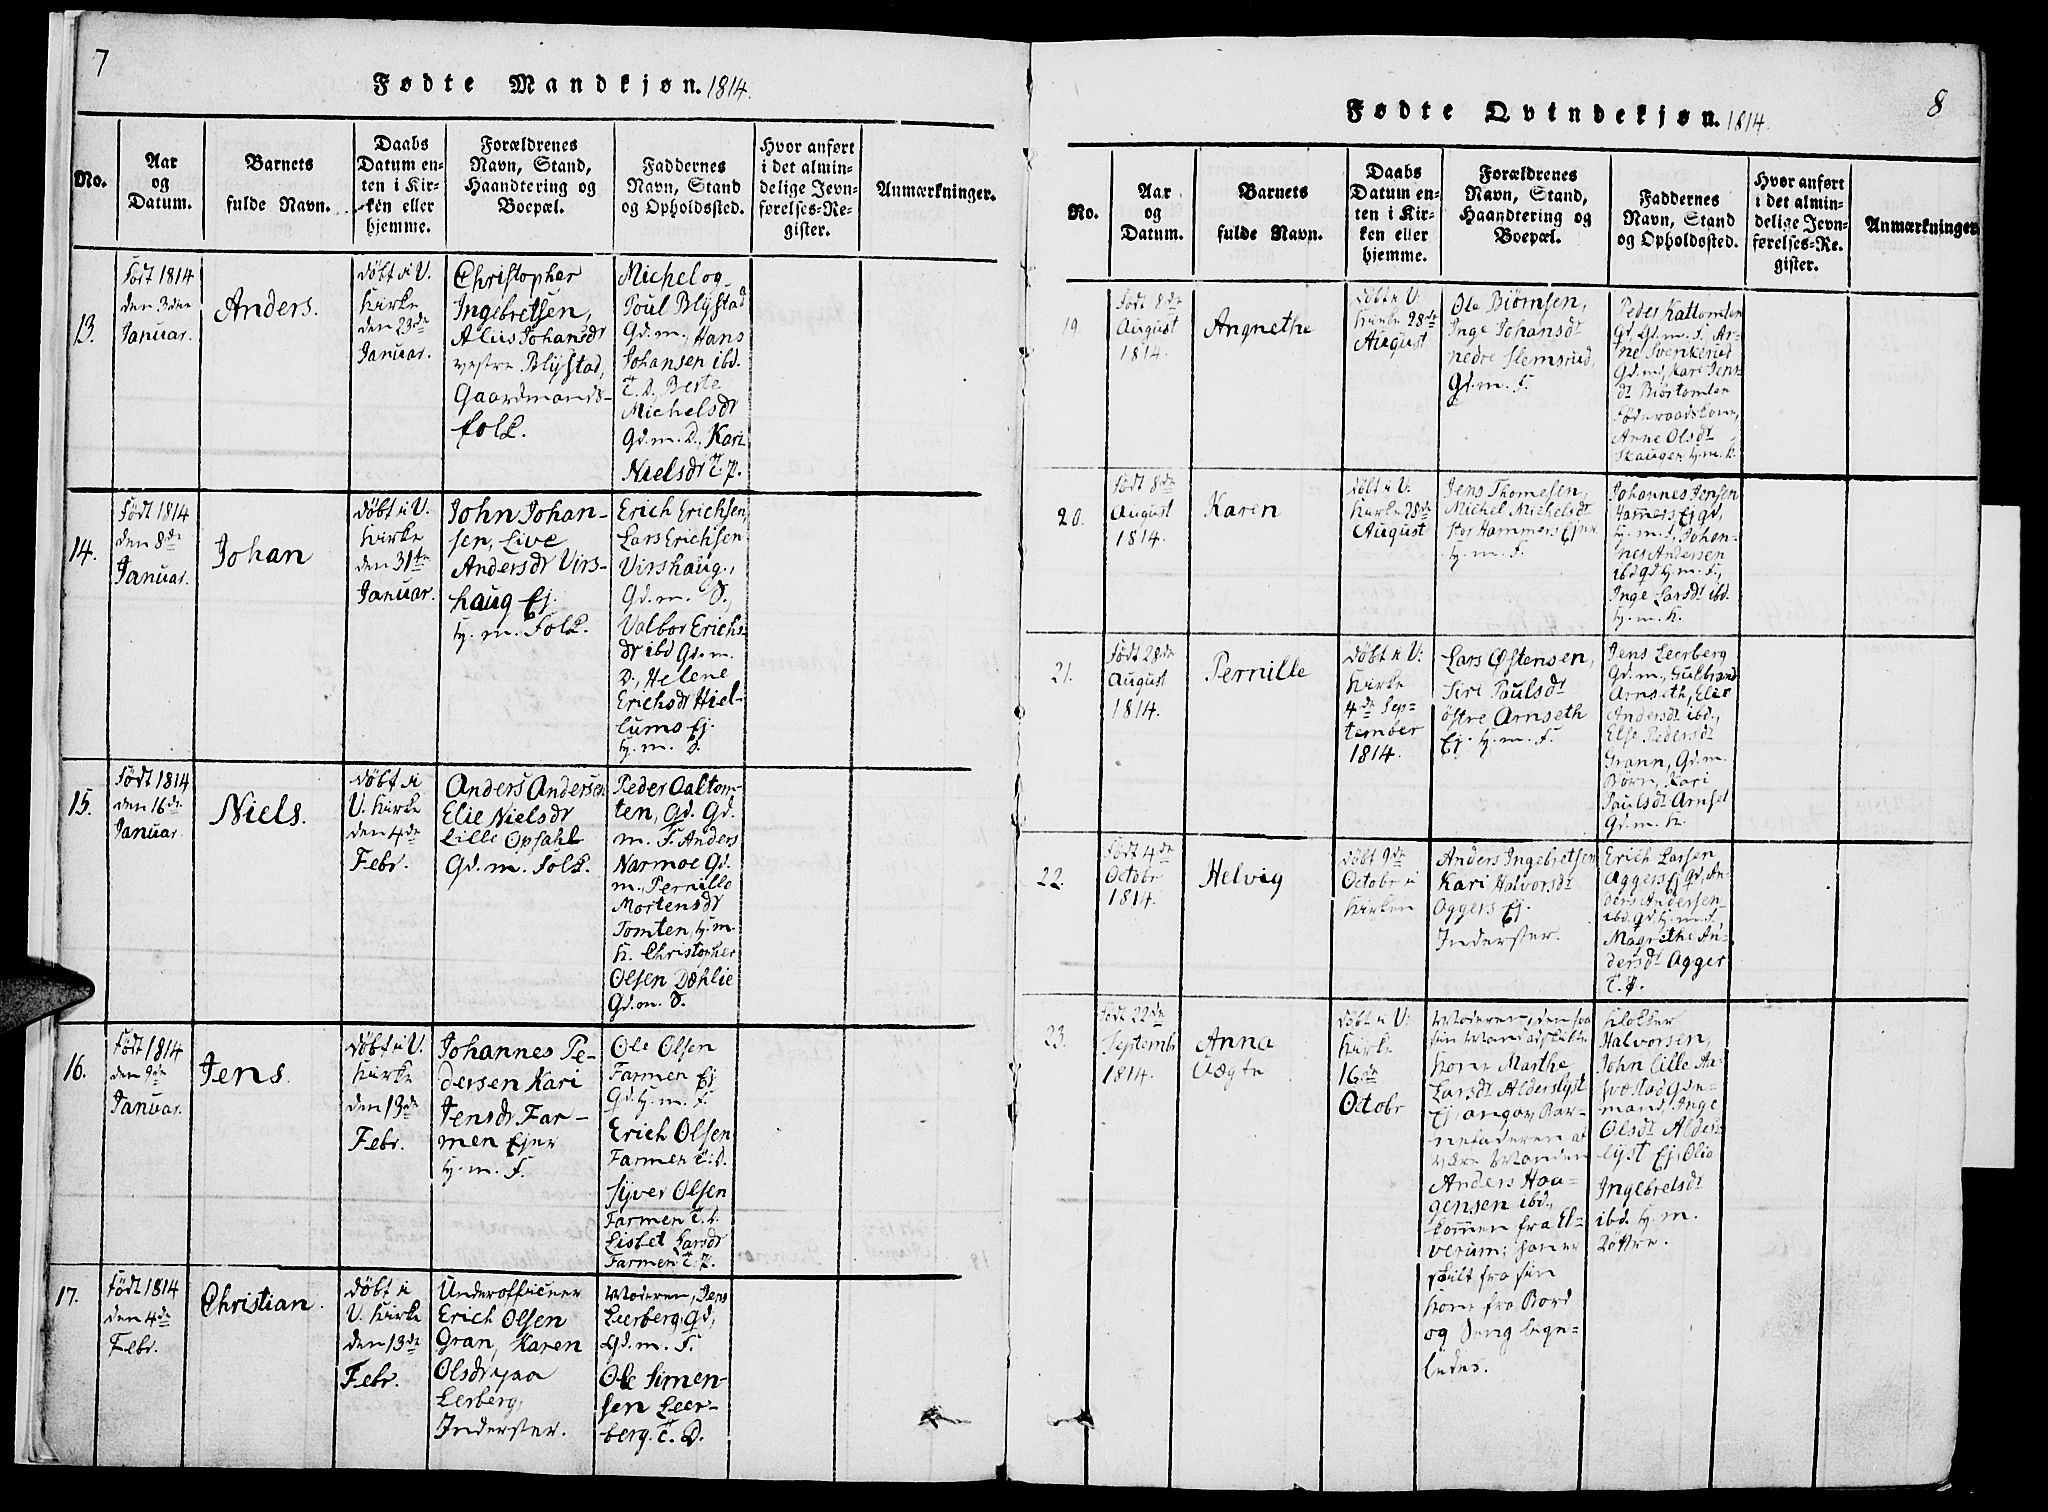 7
Fødte Mandkjøn. 1814.
No.
Aar
og
Datum.
Barnets
fulde Navn.
Daabs
Datum en-
ten i Kir-
ken eller
hjemme.
Forældrenes
Navn, Stand,
Haandtering og
Boepæl.
Faddernes
Navn, Stand
og Opholdssted.
Hvor anført
i det almin-
delige Jevn-
førelses-Re-
gister.
Anmærkninger.
13.
Født 1814
den 3die
Januar.
Anders.
døbt i V.
Kirke
den 23de
Januar.
Christopher
Ingebretsen,
Johansdr
vestre Blystad,
Gaardmands-
folk.
Michel og
Poul Blystad
Gd.m., Hans
Johansen ibd.
T. D., Berte
Michelsdr
Gd.m. D., Kari
Nielsdr T. P.
14.
Født 1814
den 8de
Januar.
Johan
døbt i V.
Kirke
den 31te
Januar.
John Johan-
sen, Live
Andersdr Virs-
haug Ej.
H. m. Folk.
Erich Erichsen,
Lars Erichsen
Virshaug,
Gd.m. S.,
Valbor Erichs-
dr ibd Gd.m.
D., Helene
Erichsdr Hiel-
lums Ej.
H. m. D.
15.
Født 1814
den 16de
Januar.
Niels.
døbt i
V. Kirke
den 4de
Febr.
Anders Andersen
Elie Nielsdr
Lille Opsahl
Gd. m. Folk.
Peder Oaltom-
ten, Gd. Gd.
m. F. Anders
Narmoe Gd.
m., Pernille
Mortensdr
Tomten, H. m.
K. Christopher
Olsen Dæhlie
Gd.m. S.
16.
Født 1814
den 9de
Januar.
Jens.
døbt i V.
Kirke
den 13de
Febr.
Johannes Pe-
dersen Kari
Jensdr Far-
men Ejer
H. m. F.
Ole Olsen
Farmen Ej
Gd. H. m. F.
Erich Olsen
Farmen T. D.
Syver Olsen
Farmen T. D.
Lisbet Larsdr
Farmen T. P.
17.
Født 1814
den 4de
Febr.
Christian.
døbt i
V. Kirke
den 13de
Febr.
Underofficeer
Erich Olsen
Gran, Karen
Olsdr paa
Lerberg,
Inderster.
Moderen, Jens
Leerberg, Gd,
Gd. m. F.
Ole Simen-
sen Leer-
berg. T. D.
8
Fødte Qvindekjøn. 1814.
No.
Aar
og
Datum.
Barnets
fulde Navn.
Daabs
Datum en-
ten i Kir-
ken eller
hjemme.
Forældrenes
Navn, Stand,
Haandtering og
Boepæl.
Faddernes
Navn, Stand
og Opholdssted.
Hvor anført
i det almin-
delige Jevn-
førelses-Re-
gister.
Anmærkninger
19.
Født 8de
August
1814.
Angnethe
døbt i V:
Kirke 28de
August
Ole Biørnsen,
Inge Johansdt
nedre Slemsrud,
Gd. m. F.
Peder Kattomten
Gd. Gd. m. F. Ar-
ne Svenkerud
Gd. m., Kari Jens-
dt Biøstomten
Føderaadskone,
Anne Olsdt
Skaugen H. m. K.
20.
Født 8de
August
1814.
Karen
døbt i V:
Kirke 28de
August
Jens Thomesen,
Michel Michelsdt
Stor Hammers Ejer
H. m. F.
Johannes Jensen
Hamers Ej gd,
H. m. F., Johan-
nes Andersen
ibd gd H. m. F.,
Inge Larsdt ibd.
H. m. K.
21.
Født 28de
August
1814.
Pernille
døbt i V:
Kirke
4de Sep-
tember
1814.
Lars Østensen,
Siri Paulsdt
østre Arnseth
Ej. H. m. F.
Jens Leerberg
Gd.m., Gulbrand
Arnseth, Elie
Andersdt ibd.,
Else Pedersdt
Grann, Gd. m.
Børn, Kari
Paulsdt Arnset
Gd. m. K.
22.
Født 4de
Octobr
1814.
Helvig
døbt 9de
Octobr i
Kirken
Anders Ingebretsen
Kari Halvorsdt
Oggers Ej.
Inderster.
Erich Larsen
Aggers Ej Gd, An-
ders Andersen
ibd. gd H. m. F.,
Magrethe An-
dersdt Agger
T. P.
23.
Født 22de
Septembr
1814.
Anna
Vægte
døbt i V:
Kirke
16de
Octobr
Moderen, den fra
sin Mand adskilte
Kone Marthe
Larsdt Alderslyst
Ej, angav Bar-
nefaderen at
være Manden
Anders Haa-
gensen ibd.,
kommen fra El-
verum; han er
skilt fra sin
Kone fra Bord
og Seng lige-
ledes.
Klokker
Halvorsen,
John Lille Aa-
Gde-
mand, Inge
Olsdt Alders-
lyst Ej, Olia
Ingebretsdt
ibd. H. m.
Dottre.